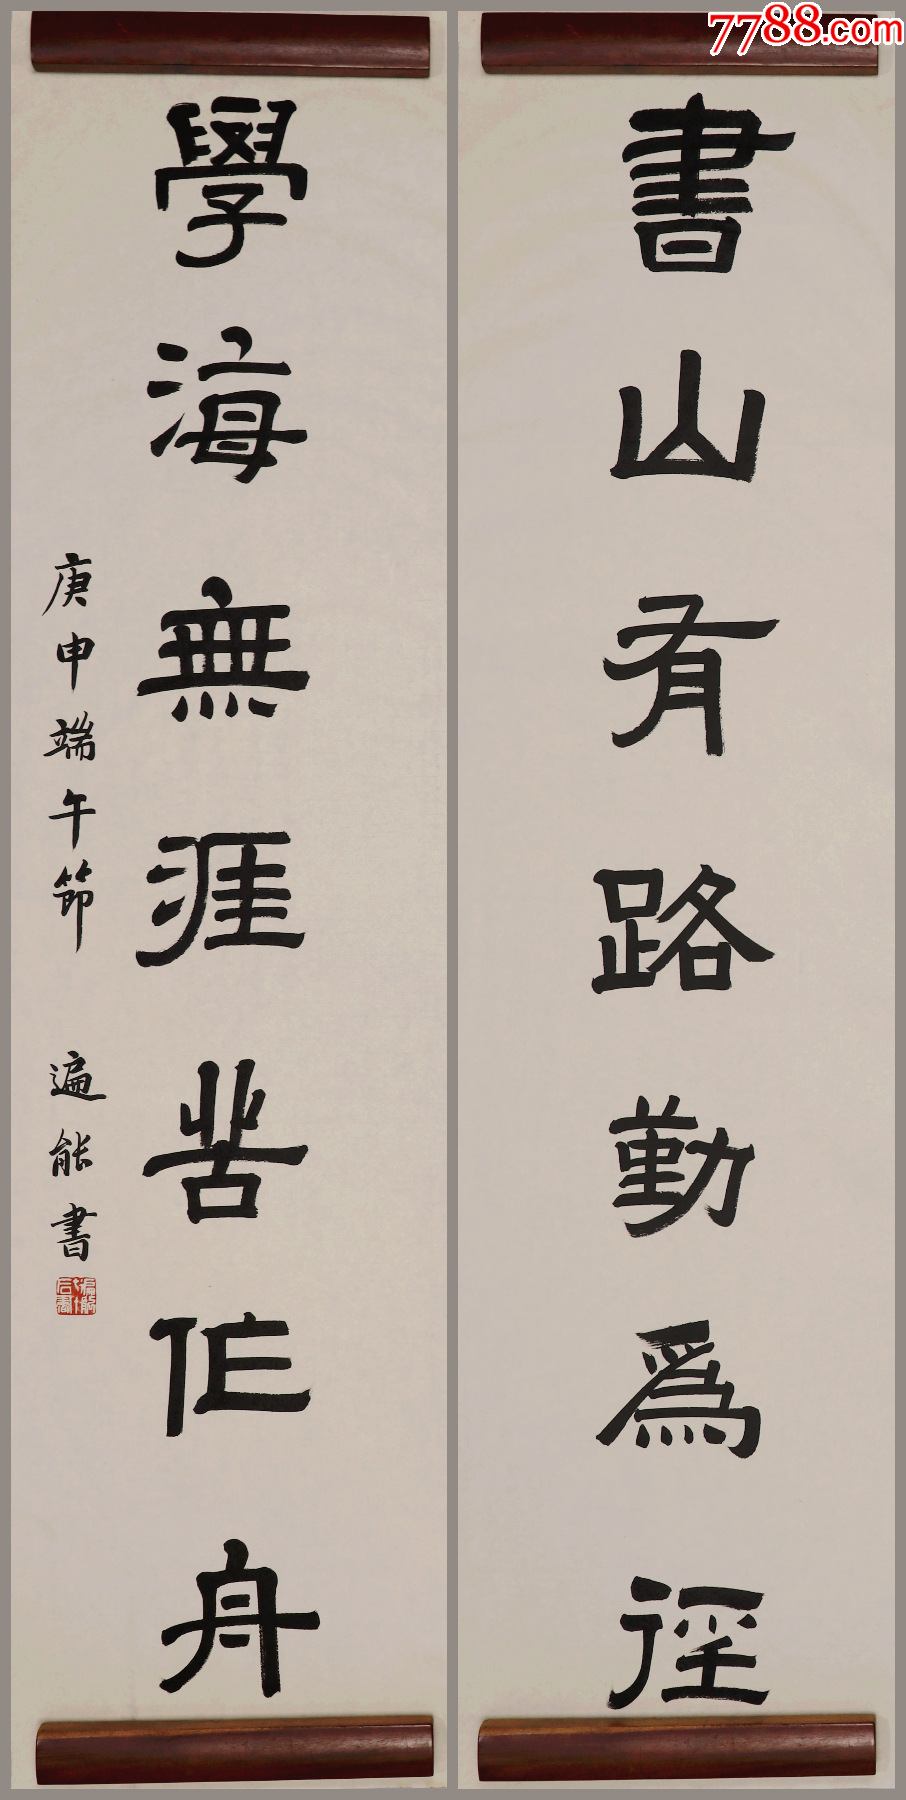 7788.com
書山有路勤為徑
學海無涯苦作舟
庚申端午節 遍能書